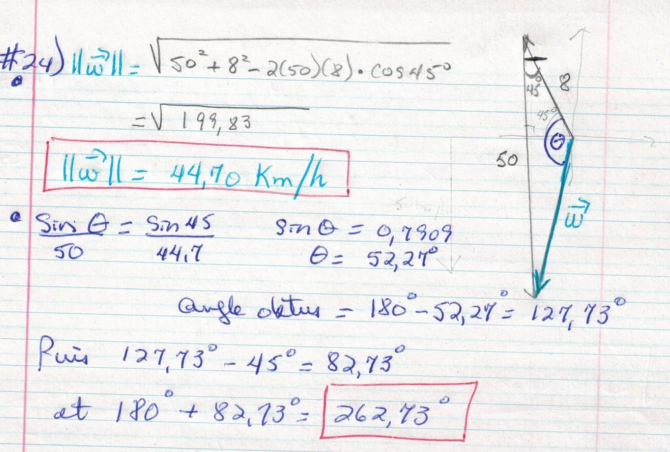 #24) ||w⃗|| = √50² + 8² - 2(50)(8)•cos45°
= √199,83
||w⃗|| = 44,70 Km/h
• Sin θ / 50 = Sin 45 / 44,7
sin θ = 0,7909
θ = 52,27°
angle obtus = 180° - 52,27° = 127,73°
Puis 127,73° - 45° = 82,73°
et 180° + 82,73° = 262,73°
45°
8
45°
θ
50
w⃗